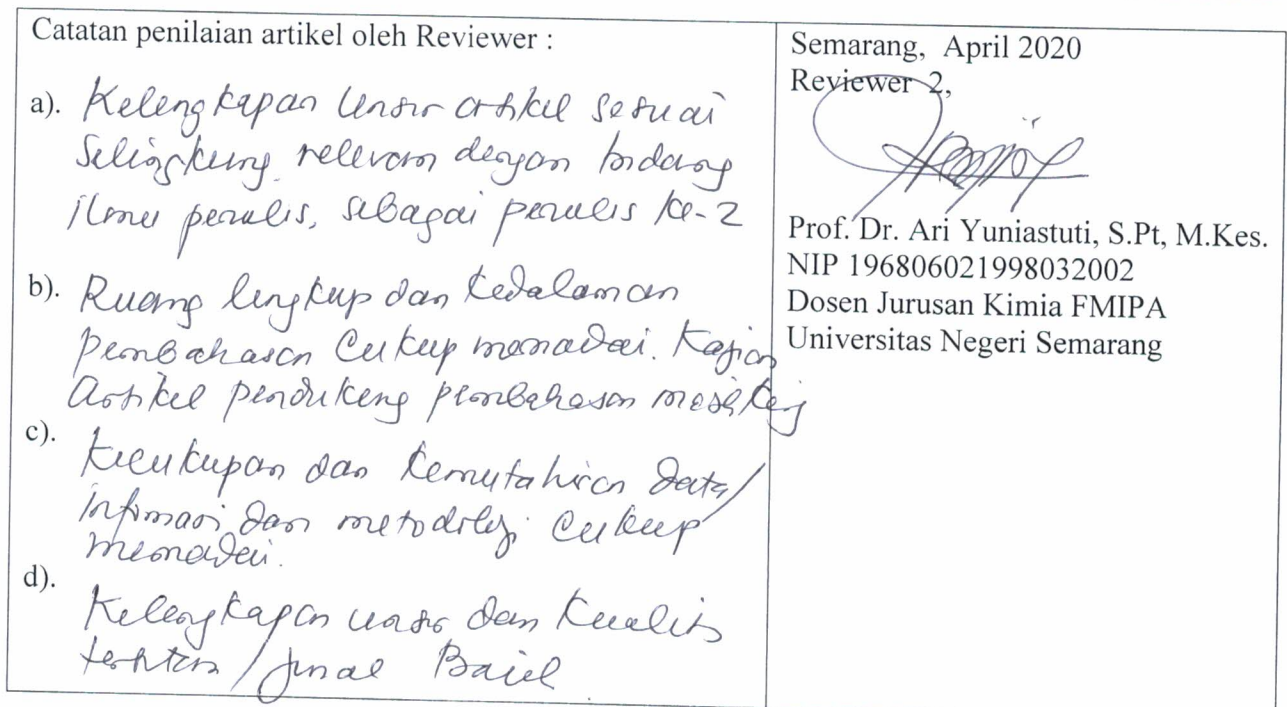 Catatan penilaian artikel oleh Reviewer :
a). Kelengkapan unsur artikel sesuai
selingkung relevan dengan bidang
ilmu penulis, sebagai penulis ke-2
b). Ruang lingkup dan kedalaman
pembahasan cukup memadai. Kajian
artikel pendukung pembahasan
c).
Kecukupan dan kemutahiran data/
infomasi dan metodologi cukup
memadai.
d).
Kelengkapan unsur dan kualitas
/ jurnal Baik
Semarang, April 2020
Reviewer 2,
Prof. Dr. Ari Yuniastuti, S.Pt, M.Kes.
NIP 196806021998032002
Dosen Jurusan Kimia FMIPA
Universitas Negeri Semarang